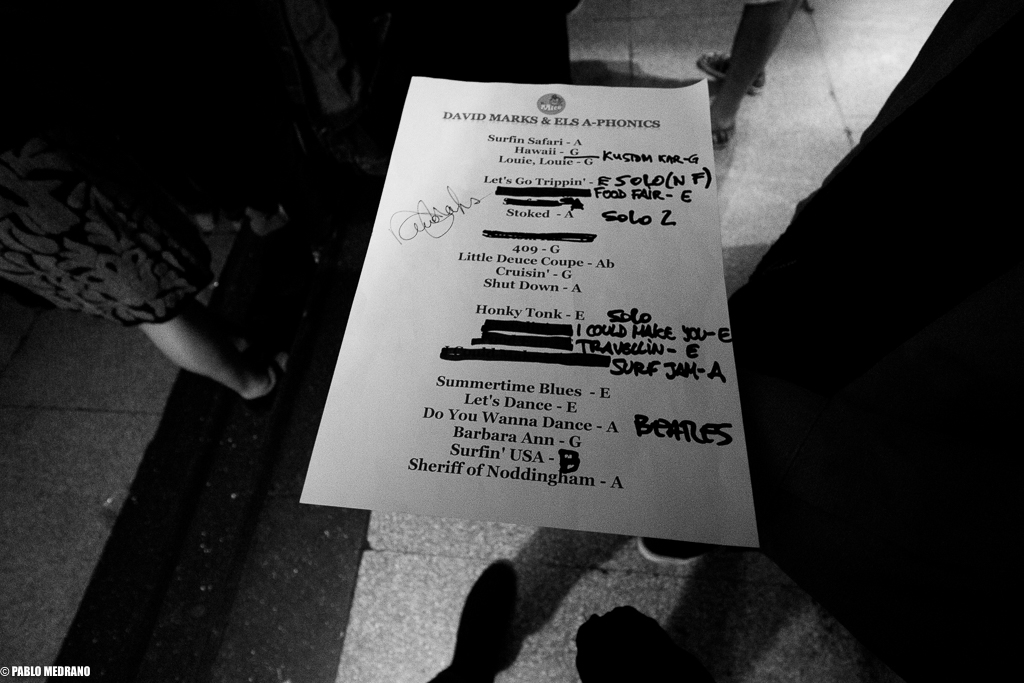 Mics
DAVID MARKS & ELS A-PHONICS
Surfin Safari - A
Hawaii - G
Louie, Louie - G KUSTOM KAR-G
Let's Go Trippin' - E SOLO (N F)
FOOD FAIR - E
Stoked - A SOLO 2
409 - G
Little Deuce Coupe - Ab
Cruisin' - G
Shut Down - A
Honky Tonk - E SOLO
I COULD MAKE YOU-E
TRAVELLIN - E
SURF JAM-A
Summertime Blues - E
Let's Dance - E
Do You Wanna Dance - A BEATLES
Barbara Ann - G
Surfin' USA - B
Sheriff of Noddingham - A
© PABLO MEDRANO